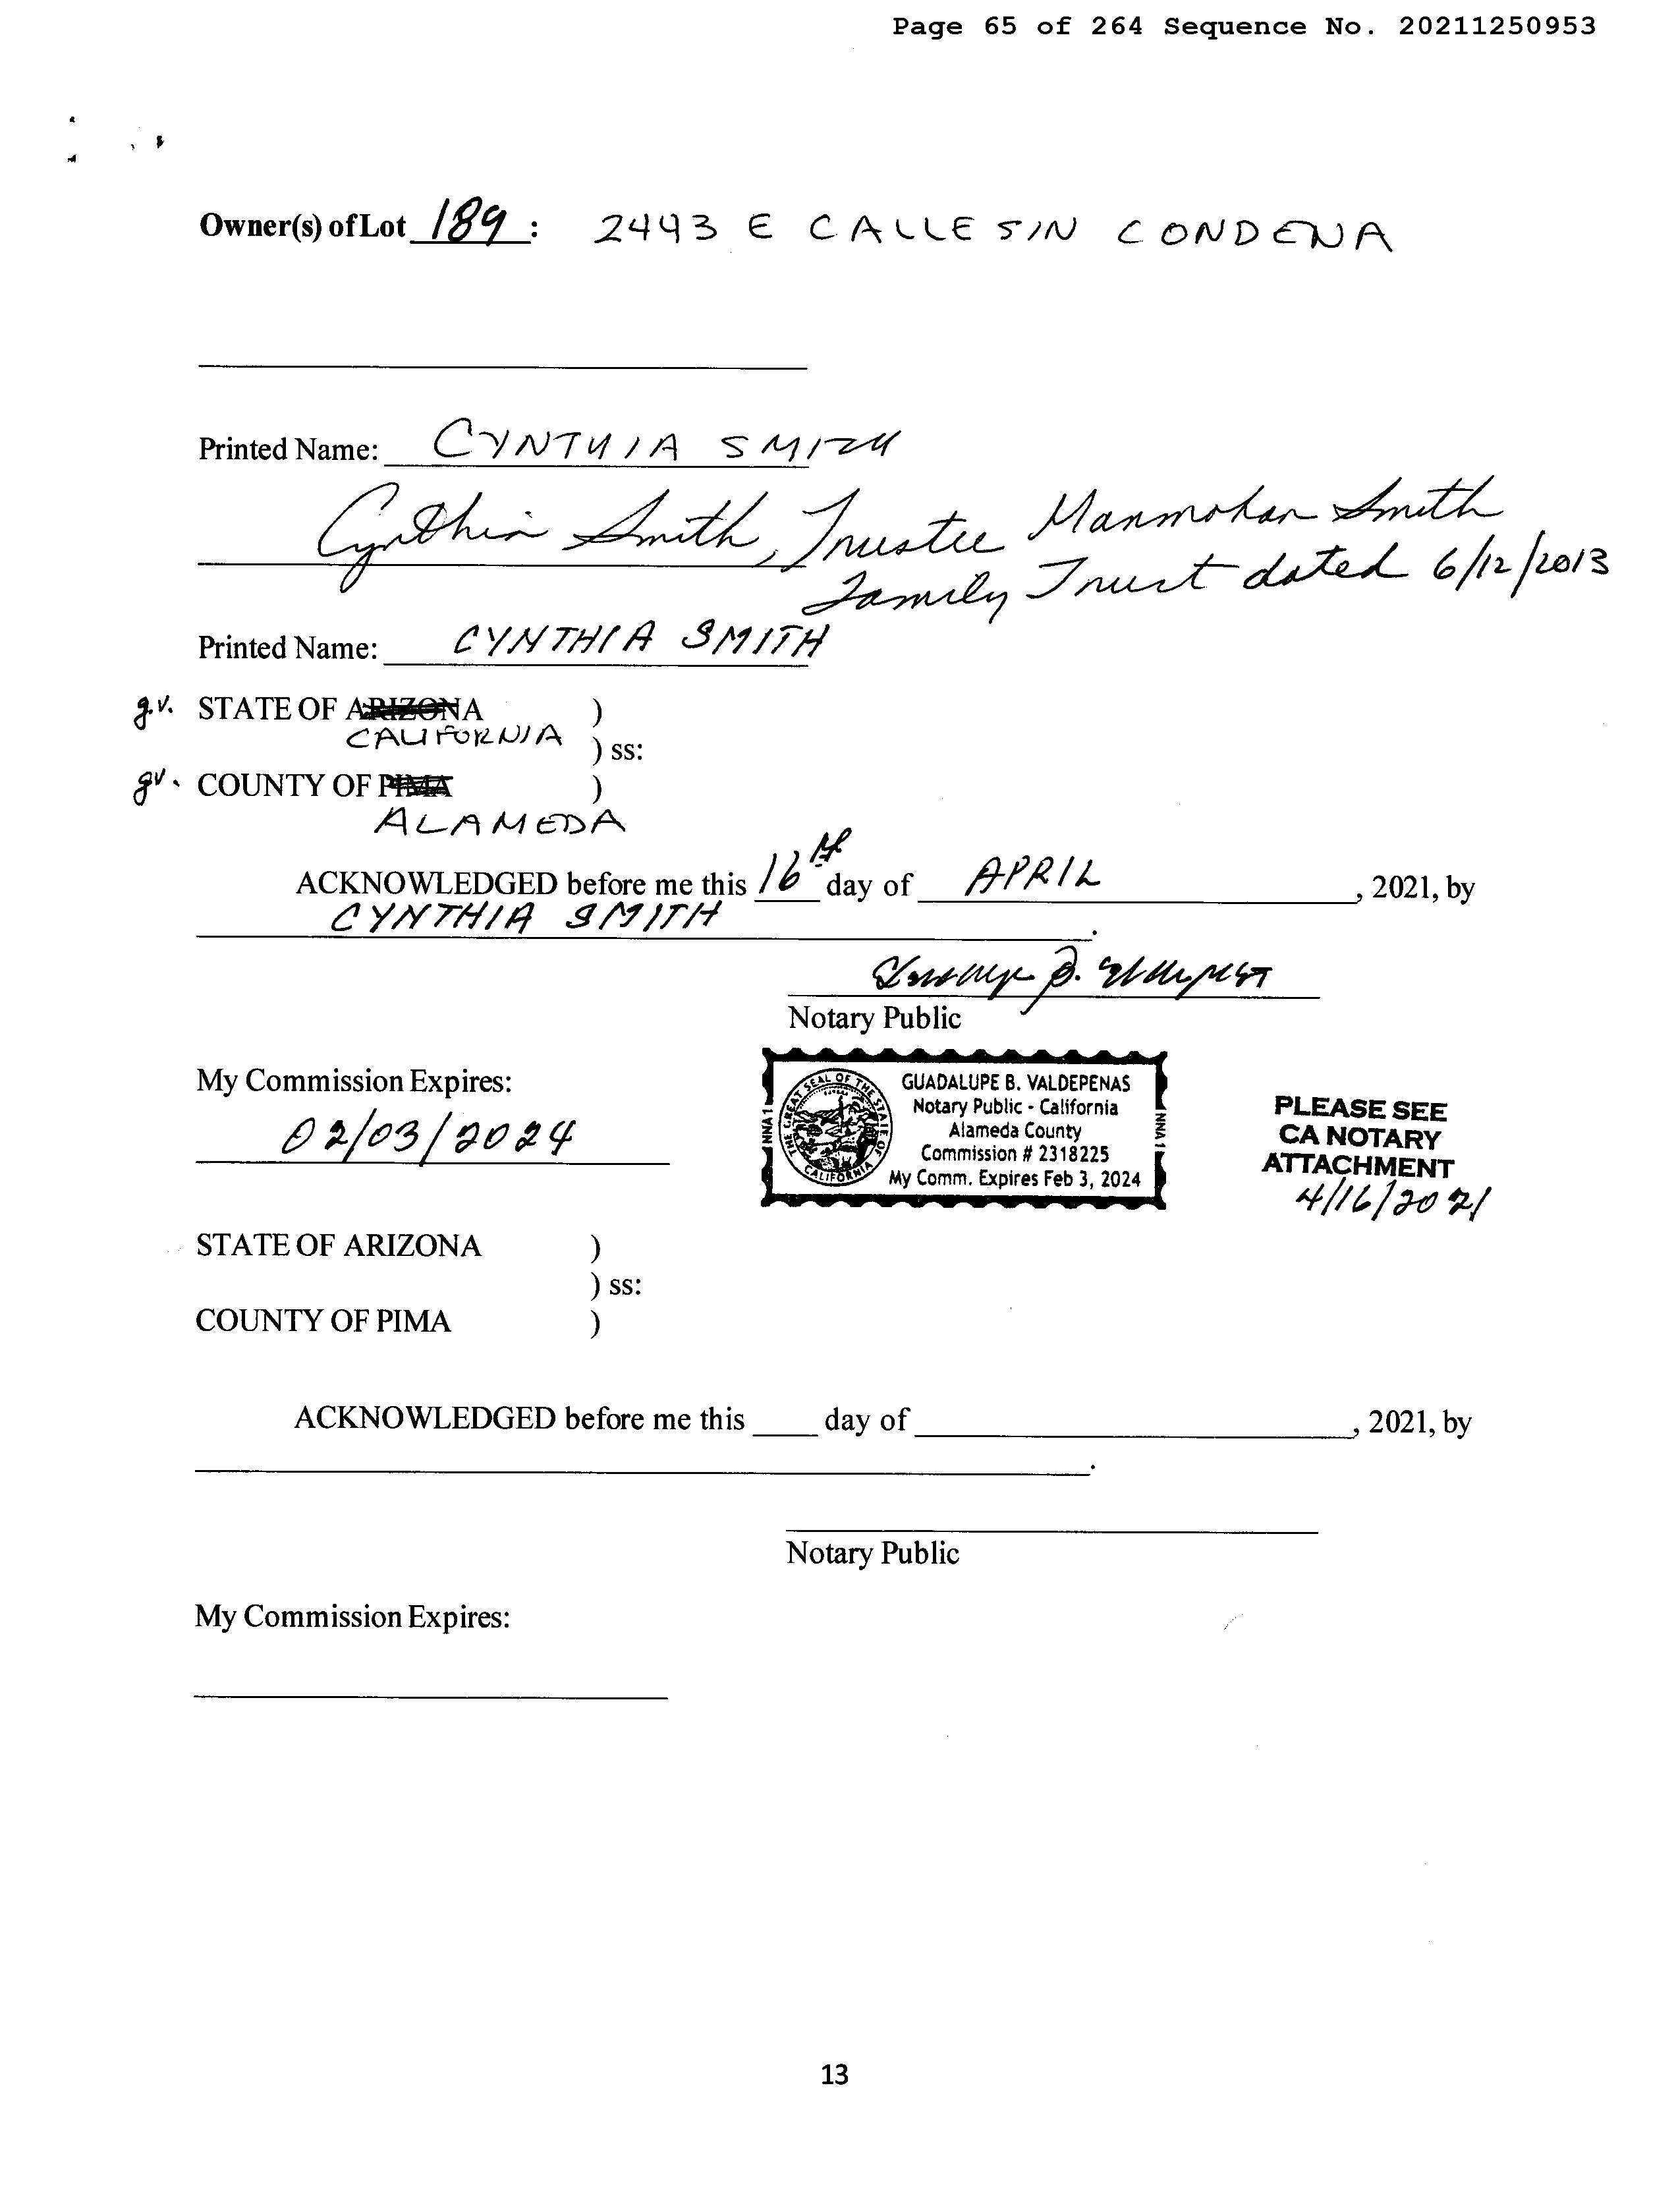 Page 65 of 264 Sequence No. 20211250953
Owner(s) of Lot 189 : 2443 E CALLE SIN CONDENA
Printed Name: CYNTHIA SMITH
Cynthia Smith, Trustee Manmohan Smith
Family Trust dated 6/12/2013
Printed Name: CYNTHIA SMITH
g.v. STATE OF ARIZONA )
CALIFORNIA ) ss:
gv. COUNTY OF PIMA )
ALAMEDA
ACKNOWLEDGED before me this 16th day of APRIL, 2021, by
CYNTHIA SMITH.
Notary Public
My Commission Expires:
02/03/2024
THE GREAT SEAL OF THE STATE OF CALIFORNIA
NNA 1
GUADALUPE B. VALDEPENAS
Notary Public - California
Alameda County
Commission # 2318225
My Comm. Expires Feb 3, 2024
NNA 1
PLEASE SEE
CA NOTARY
ATTACHMENT
4/16/2021
STATE OF ARIZONA )
) ss:
COUNTY OF PIMA )
ACKNOWLEDGED before me this ____ day of ____, 2021, by
____.
Notary Public
My Commission Expires:
13